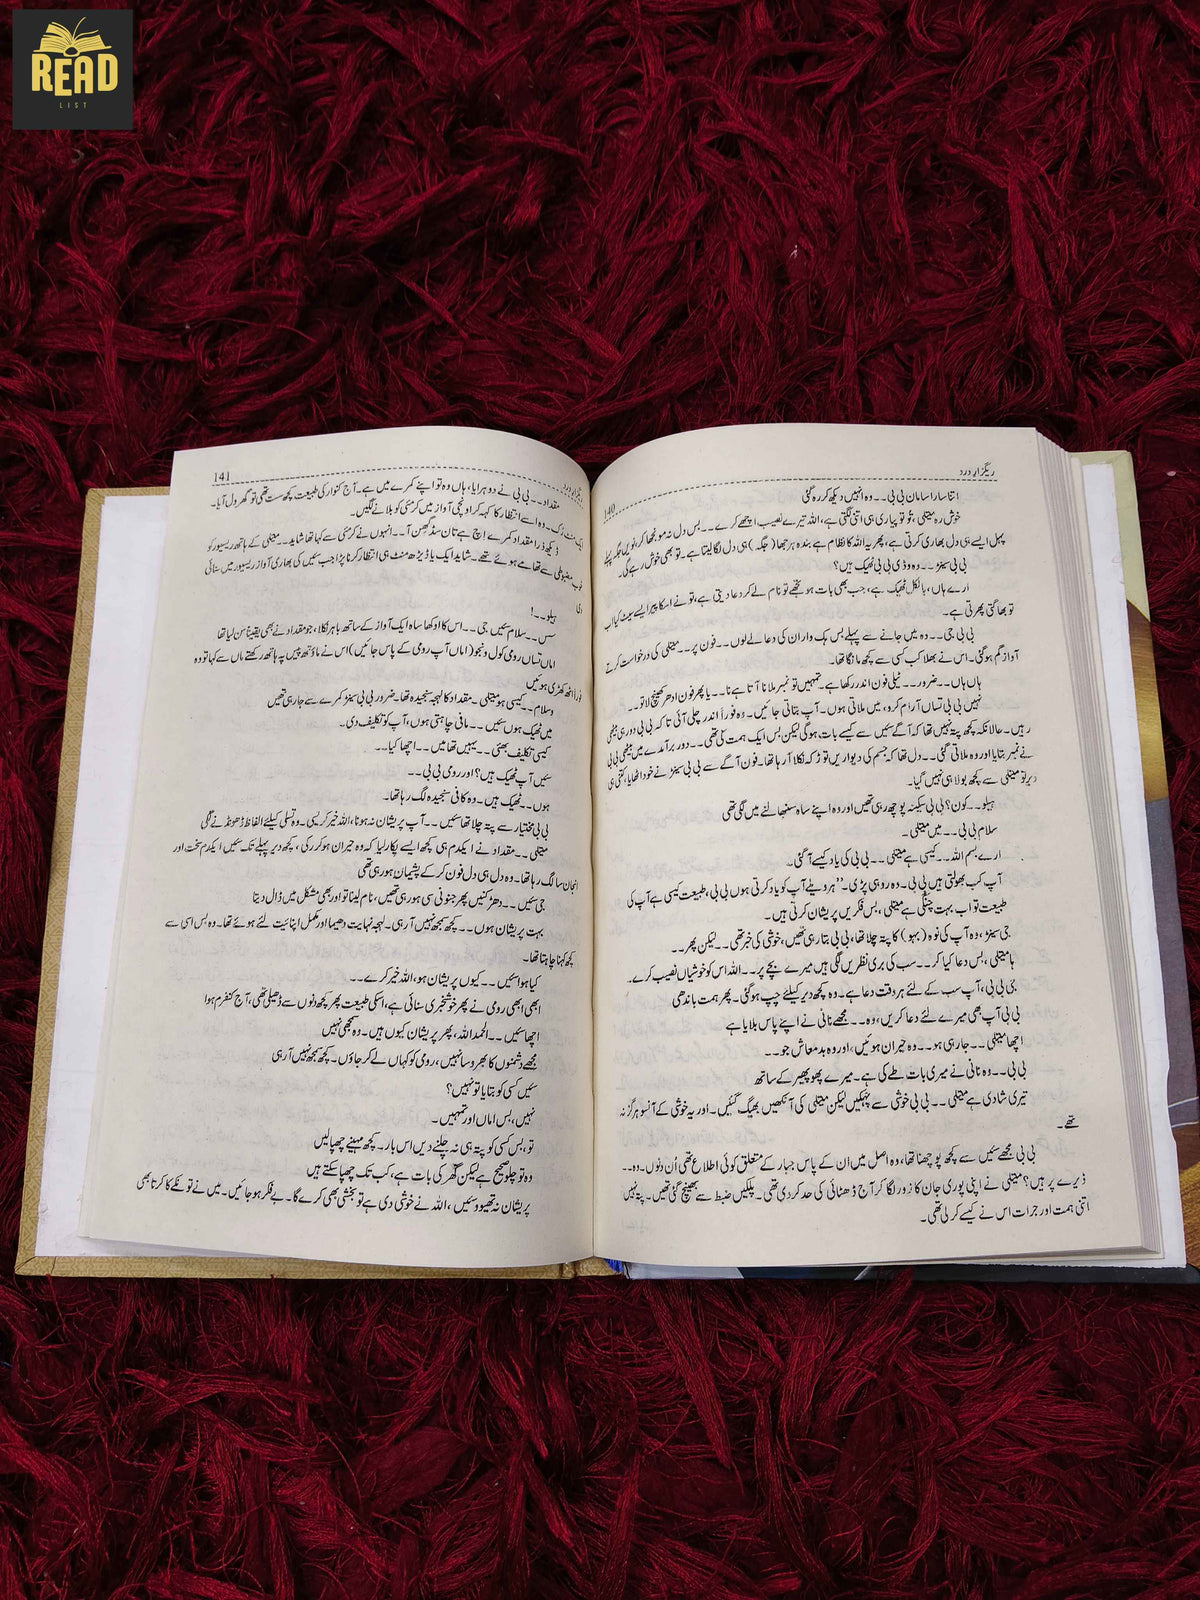 READ
LIST
ریگزارِ درد
140
اتنا سارا سامان بی بی۔۔ وہ انہیں دیکھ کر رہ گئی
خوش رہ میتلی، تُو تو پیاری ہی اتنی لگتی ہے، اللہ تیرے نصیب اچھے کرے۔۔ بس دل نہ مونجھا کر، نویں جگہ پہلے
پہل ایسے ہی دل بھاری کرتی ہے، پھر یہ اللہ کا نظام ہے بندہ ہر جھا (جگہ) ہی دل لگا لیتا ہے۔ تو بھی خوش رہے گی۔
بی بی سینڑ۔۔ وہ وڈی بی بی ٹھیک ہیں؟
ارے ہاں، بالکل ٹھیک ہے، جب بھی بات ہو تجھے تو نام لے کر دعا دیتی ہے، تو نے اسکا پیر ایسے سیٹ کیا اب
تو بھاگتی پھرتی ہے۔
بی بی جی۔۔ وہ میں جانے سے پہلے بس ہک وار ان کی دعا لے لوں۔۔ فون پر۔۔ میتلی کی درخواست کرتے
آواز گم ہو گئی۔ اس نے بھلا کب کسی سے کچھ مانگا تھا۔
ہاں ہاں۔۔ ضرور۔۔ ٹیلی فون اندر رکھا ہے۔ تمہیں تو نمبر ملانا آتا ہے نا۔۔ یا پھر فون ادھر کھینچ لا تو۔۔
نہیں بی بی تساں آرام کرو، میں ملاتی ہوں۔ آپ بتاتی جائیں۔ وہ فوراً اندر چلی آئی تا کہ بی بی دور ہی بیٹھی
رہیں۔ حالانکہ کچھ پتہ نہیں تھا کہ آگے سئیں سے کیسے بات ہوگی لیکن بس ایک ہمت سی تھی۔۔ دور برآمدے میں بیٹھی بی بی
نے نمبر بتایا اور وہ ملاتی گئی۔۔ دل تھا کہ جسم کی دیواریں توڑ کہ نکلا آ رہا تھا۔ فون آگے سے بی بی سینڑ نے خود اٹھایا، کتنی ہی
دیر تو میتلی سے کچھ بولا ہی نہیں گیا۔
ہیلو۔۔ کون؟ بی بی سکینہ پوچھ رہی تھیں اور وہ اپنے ساہ سنبھالنے میں لگی تھی
سلام بی بی۔۔ میں میتلی۔
ارے بسم اللہ۔۔ کیسی ہے میتلی۔۔ بی بی کی یاد کیسے آ گئی۔
آپ کب بھولتی ہیں بی بی۔ وہ رو ہی پڑی۔ ہر ویلے آپ کو یاد کرتی ہوں بی بی، طبیعت کیسی ہے آپ کی
طبیعت تو اب بہت چنگی ہے میتلی، بس فکریں پریشان کرتی ہیں۔
جی سینڑ، وہ آپ کی نوہ (بہو) کا پتہ چلا تھا، بی بی بتا رہی تھیں، خوشی کی خبر تھی۔۔ لیکن پھر۔۔
ہا میتلی، بس دعا کیا کر۔۔ سب کی بری نظریں لگی ہیں میرے بچے پر۔۔ اللہ اس کو خوشیاں نصیب کرے۔
بی بی، آپ سب کے لئے ہر وقت دعا ہے۔ وہ کچھ دیر کیلئے چپ ہو گئی۔ پھر ہمت باندھی
بی بی آپ بھی میرے لئے دعا کریں، وہ۔۔ مجھے نانی نے اپنے پاس بلایا ہے
اچھا میتلی۔۔ جا رہی ہو۔۔ وہ حیران ہوئیں، اور وہ بد معاش جو۔۔
بی بی۔۔ وہ نانی نے میری بات طے کی ہے۔ میرے پھوپھیر کے ساتھ
تیری شادی ہے میتلی۔۔ بی بی خوشی سے چہکیں لیکن میتلی کی آنکھیں بھیگ گئیں۔ اور یہ خوشی کے آنسو ہرگز نہ
تھے۔
بی بی مجھے سئیں سے کچھ پوچھنا تھا، وہ اصل میں ان کے پاس جبار کے متعلق کوئی اطلاع تھی اُن دنوں۔ وہ۔۔
ڈیرے پر ہیں؟ میتلی نے اپنی پوری جان کا زور لگا کر آج ڈھٹائی کی حد کر دی تھی۔ پلکیں ضبط سے بھینچ گئی تھیں۔ پتہ نہیں
اتنی ہمت اور جرات اس نے کیسے کر لی تھی۔
ریگزارِ درد
141
مقداد۔۔ بی بی نے دوہرایا، ہاں وہ تو اپنے کمرے میں ہے۔ آج کنوار کی طبیعت کچھ سست تھی تو گھر ول آیا۔
ایک منٹ رک۔ وہ اسے انتظار کا کہہ کر اونچی آواز میں کرمنی کو بلانے لگیں۔
ڈیکھ ذرا مقداد کمرے اچ ہے تاں سڈ گھن آ۔۔ انہوں نے کرمنی سے کہا تھا شاید۔۔ میتلی کے ہاتھ ریسیور کو
خوب مضبوطی سے تھامے ہوئے تھے۔ شاید ایک یا ڈیڑھ منٹ ہی انتظار کرنا پڑا جب سئیں کی بھاری آواز ریسیور میں سنائی
دی
ہیلو۔۔!
سس۔۔ سلام سئیں جی۔۔ اس کا اوکھا ساہ ایک آواز کے ساتھ باہر نکلا، جو مقداد نے بھی یقیناً سن لیا تھا
اماں تساں رومی کول ونجو (اماں آپ رومی کے پاس جائیں) اس نے ماؤتھ پیس پہ ہاتھ رکھتے ماں سے کہا تو وہ
فوراً اٹھ کھڑی ہوئیں
وسلام۔۔ کیسی ہو میتلی۔ مقداد کا لہجہ سنجیدہ تھا۔ ضرور بی بی سینڑ کمرے سے جا رہی تھیں
میں ٹھیک ہوں سئیں۔۔ مافی چاہتی ہوں، آپ کو تکلیف دی۔
کیسی تکلیف بھئی۔۔ یہیں تھا میں۔۔ اچھا کیا۔۔
سئیں آپ ٹھیک ہیں؟ اور رومی بی بی۔۔
ہوں۔۔ ٹھیک ہیں۔ وہ کافی سنجیدہ لگ رہا تھا۔
بی بی بختیار سے پتہ چلا تھا سئیں۔۔ آپ پریشان نہ ہونا، اللہ خیر کریسی۔ وہ تسلی کیلئے الفاظ ڈھونڈنے لگی
میتلی۔۔ مقداد نے ایکدم ہی کچھ ایسے پکار لیا کہ وہ حیران ہو کر رکی، کچھ دیر پہلے تک سئیں ایکدم سخت اور
انجان سا لگ رہا تھا۔ وہ دل ہی دل فون کر کے پشیمان ہو رہی تھی
جی سئیں۔۔ دھڑکنیں پھر جنونی سی ہو رہی تھیں، نام لینا تو اور بھی مشکل میں ڈال دیتا
بہت پریشان ہوں۔۔ کچھ سمجھ نہیں آ رہی۔ لہجہ نہایت دھیما اور مکمل اپنائیت لئے ہوئے تھا۔ وہ بس اسی سے
کچھ کہنا چاہتا تھا۔
کیا ہوا سئیں۔۔ کیوں پریشان ہو، اللہ خیر کرے۔۔
ابھی ابھی رومی نے پھر خوشخبری سنائی ہے، اسکی طبیعت پھر کچھ دنوں سے ڈھیلی تھی، آج کنفرم ہوا
اچھا سئیں۔۔ الحمد اللہ، پھر پریشان کیوں ہیں۔ وہ سمجھی نہیں
مجھے دشمنوں کا بھروسا نہیں، رومی کو کہاں لے کر جاؤں۔ کچھ سمجھ نہیں آ رہی
سئیں کسی کو بتایا تو نہیں؟
نہیں، بس اماں اور تمہیں۔
تو بس کسی کو پتہ ہی نہ چلنے دیں اس بار۔ کچھ مہینے چھپا لیں
وہ تو چلو صحیح ہے لیکن گھر کی بات ہے، کب تک چھپا سکتے ہیں
پریشان نہ تھیوو سئیں، اللہ نے خوشی دی ہے تو بخشی بھی کرے گا۔ بے فکر ہو جائیں۔ میں نے تو نکے کا کرتا بھی